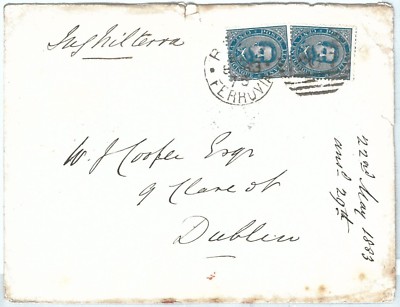 Inghilterra
FERROVIA
W. J. Cooper Esqr
9 Clare St
Dublin
22nd May 1883
ansd 29th